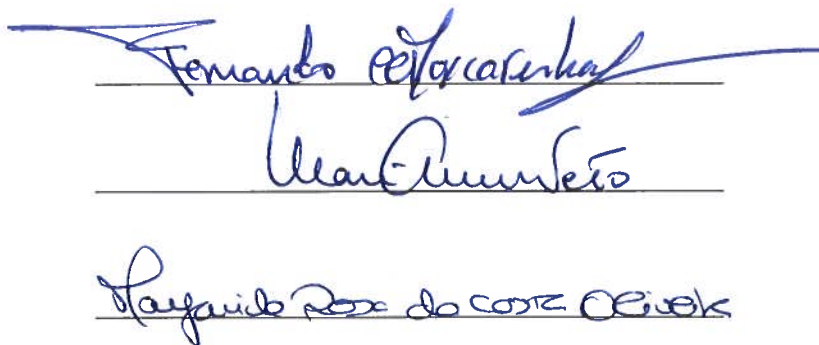 Fernando Mascarenhas
Neto
Margarida Rosa da Costa Oliveira